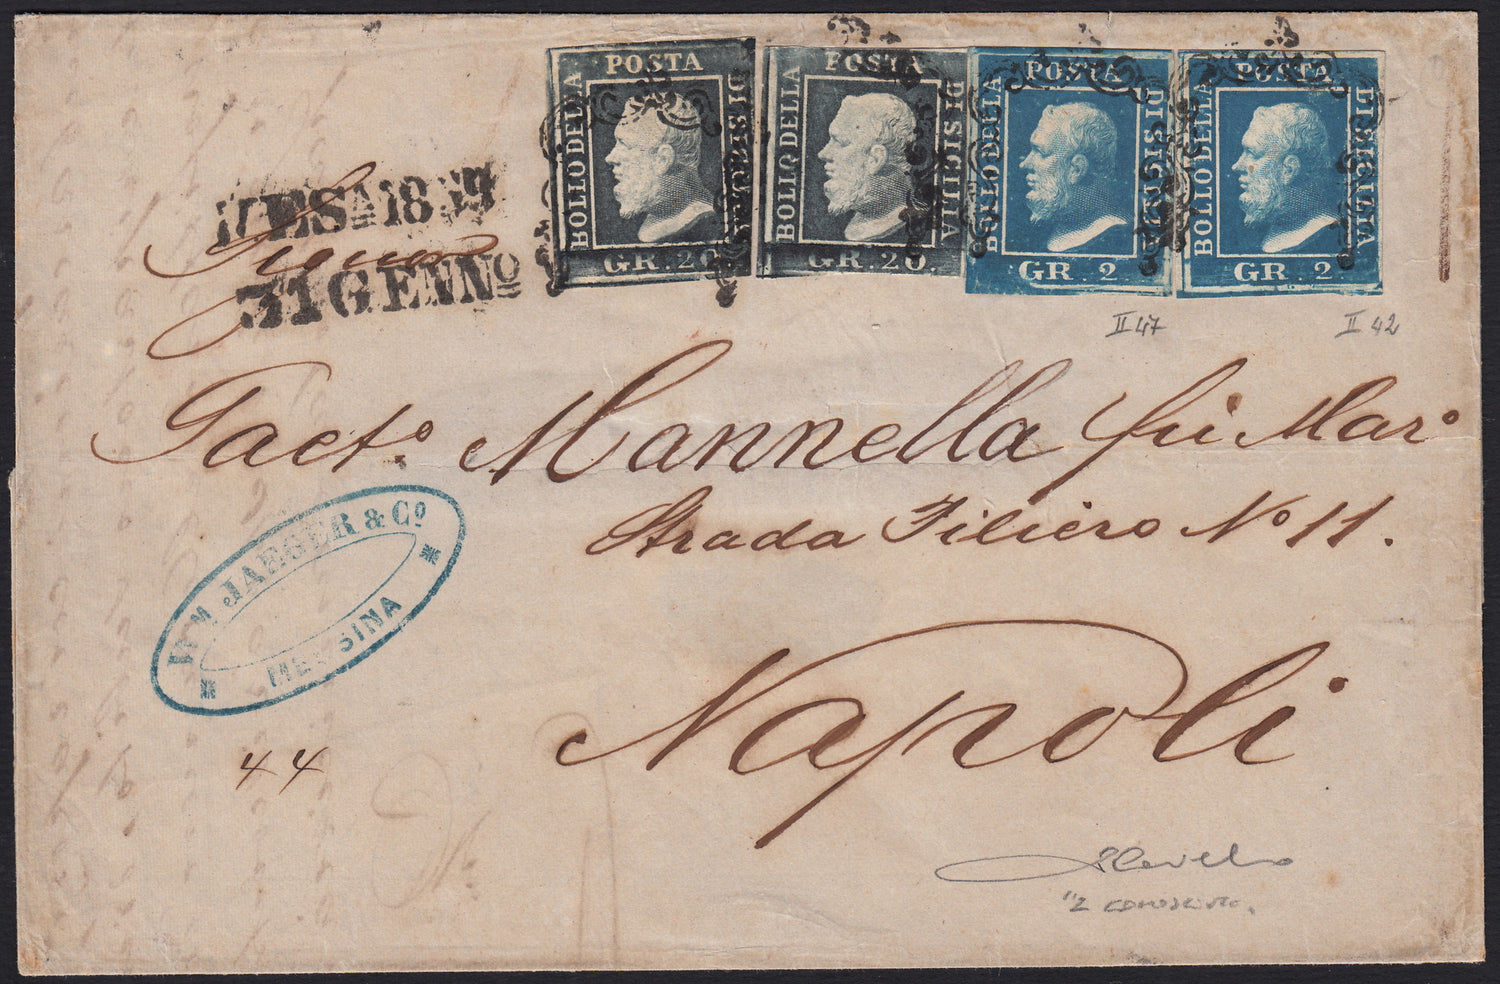 POSTA
BOLLO DELLA
DI SICILIA
GR. 20.
POSTA
BOLLO DELLA
DI SICILIA
GR. 20.
POSTA
BOLLO DELLA
DI SICILIA
GR. 2
POSTA
BOLLO DELLA
DI SICILIA
GR. 2
II 47
II 42
MESA 1859
31 GENNO
Gaeto. Mannella fu Maro
Strada Filiero No 11.
Napoli
WM JAEGER & Co
MESSINA
44